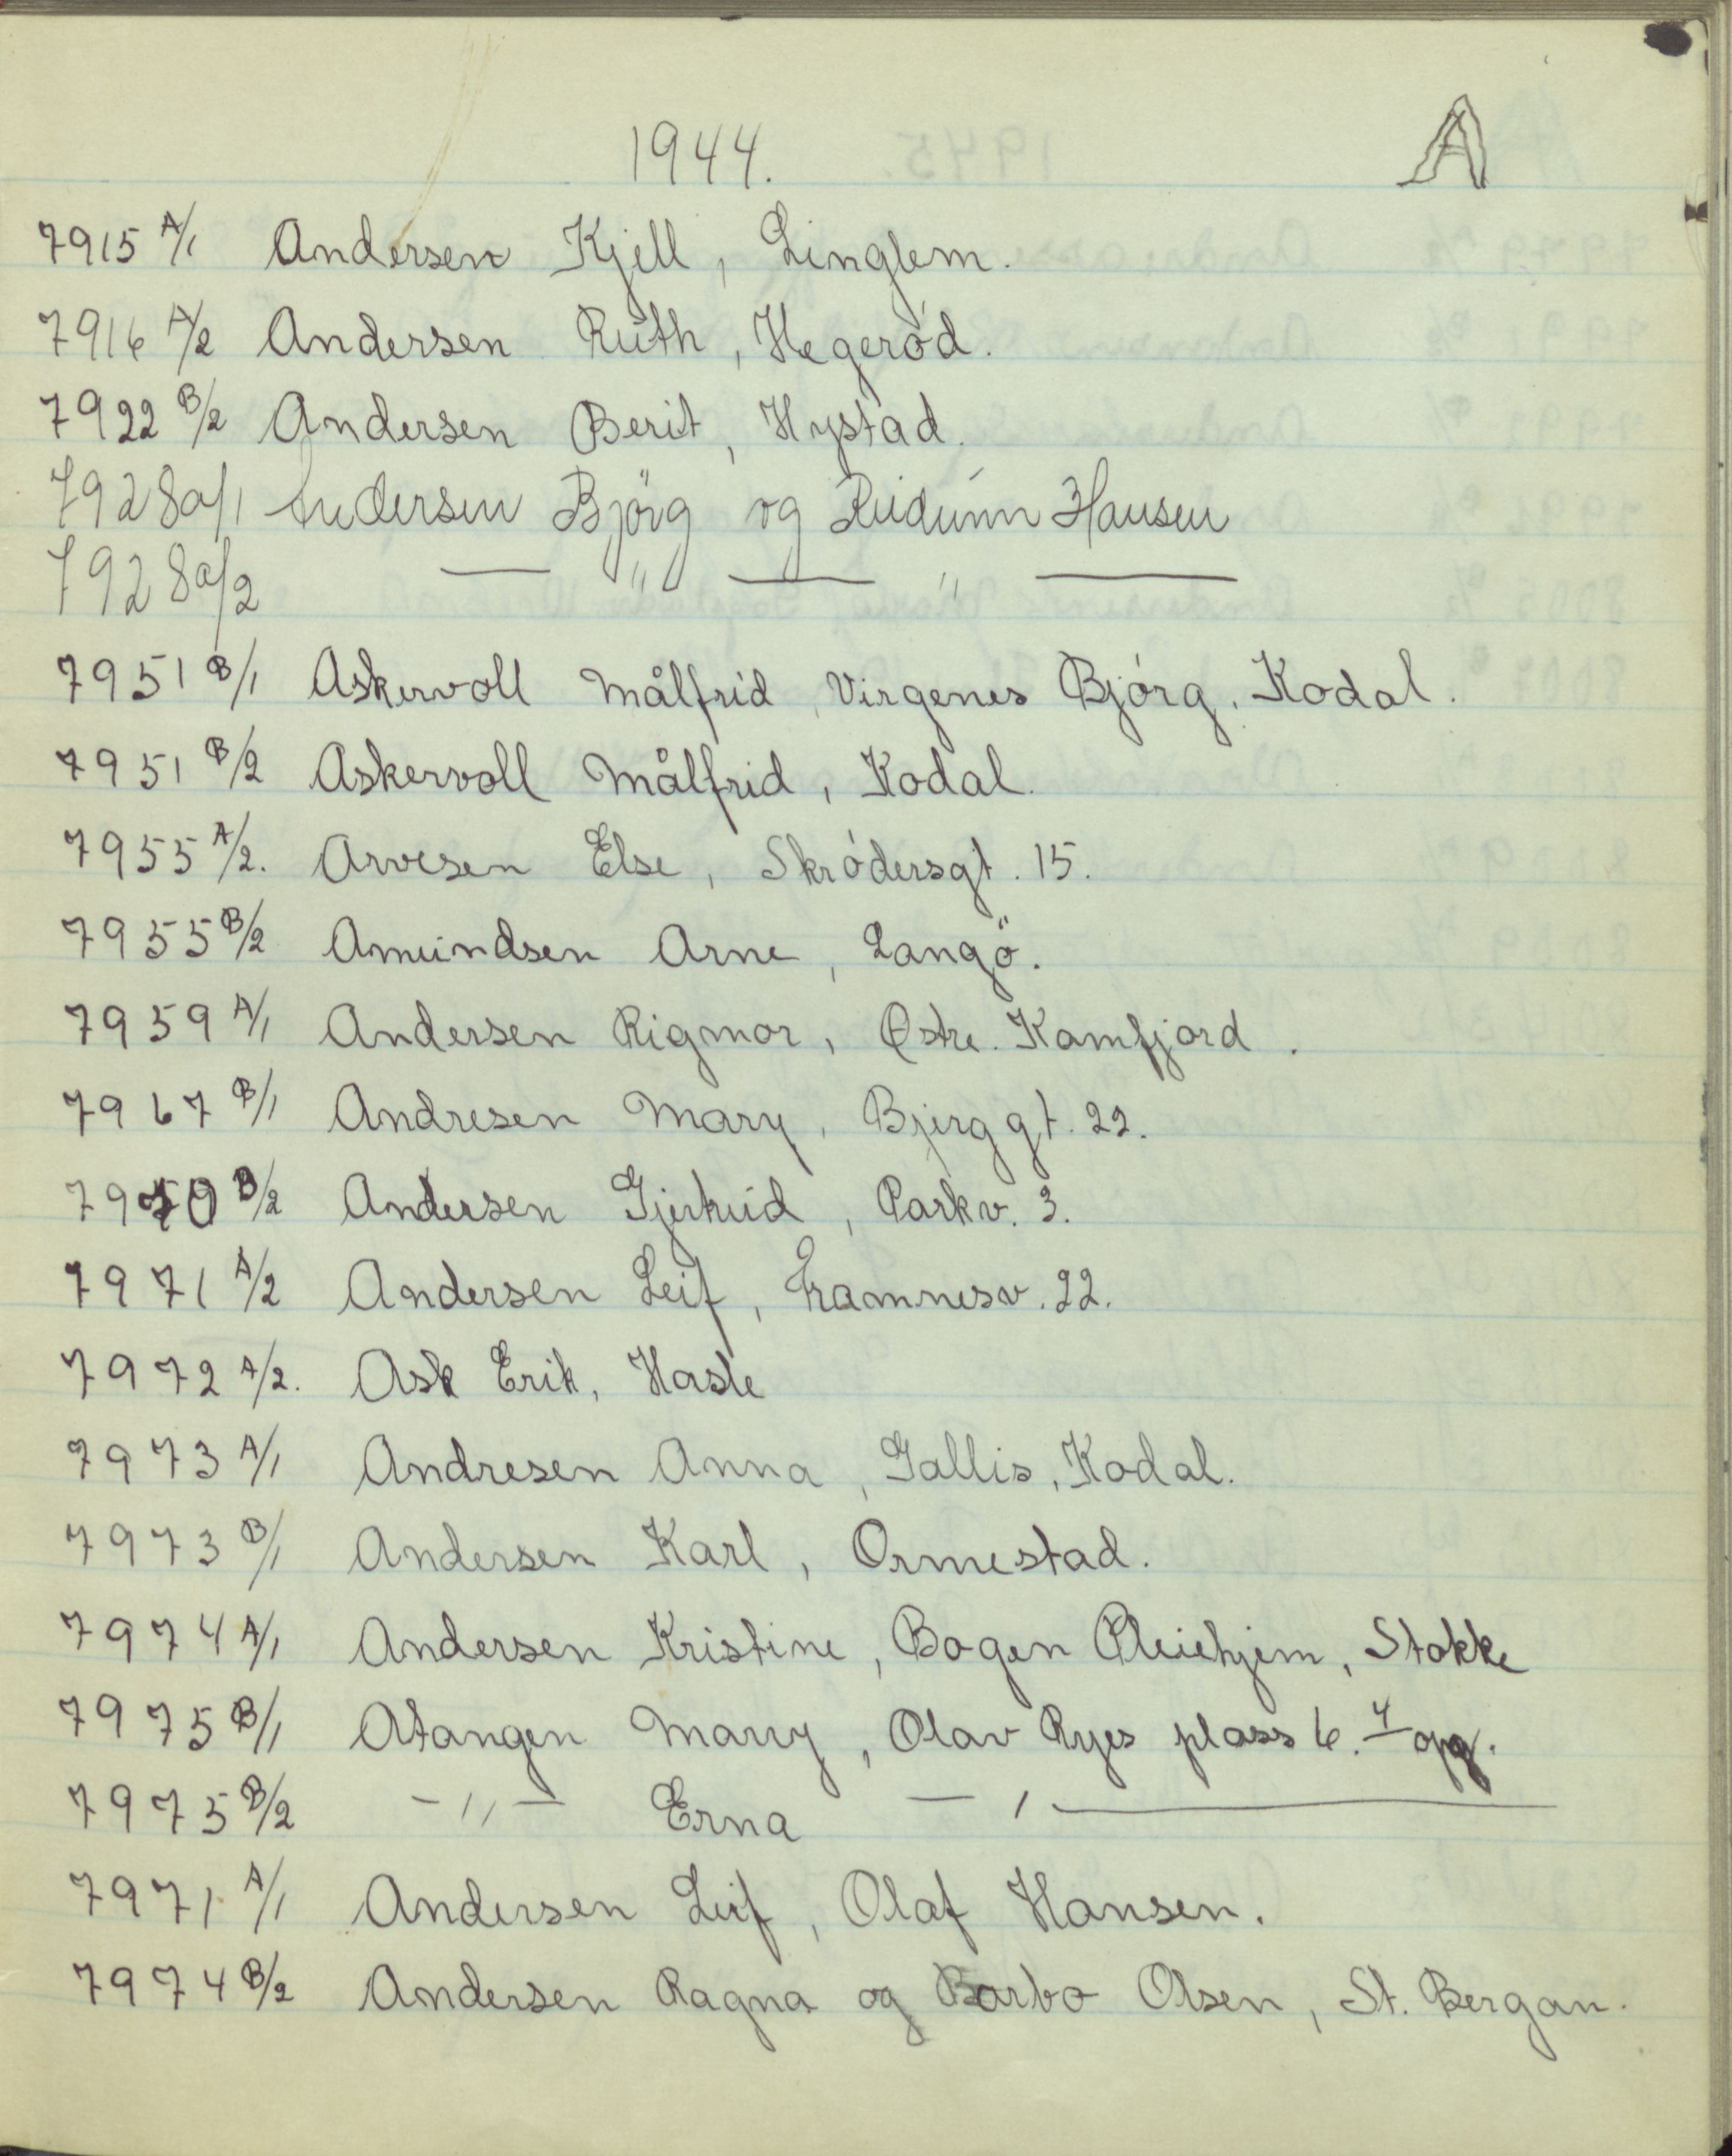 1944. A
7915 A/1 Andersen Kjell, Linglem.
7916 A/2 Andersen Ruth, Hegeród.
7922 B/2 Andersen Berit, Hystad.
7928 a/1 Andersen Björg og Reidunn Hansen
7928 a/2 — " — " —
7951 B/1 Askervoll Målfrid, Virgenes Bjórg, Kodal.
7951 B/2 Askervoll Målfrid, Kodal.
7955 A/2. Arvesen Else, Skródersgt. 15.
7955 B/2 Amundsen Arne, Langö.
7959 A/1 Andersen Rigmor, Østre. Kamfjord.
7967 B/1 Andresen Mary, Bjerggt. 22.
7970 B/2 Andersen Gjertrud, Parkv. 3.
7971 A/2 Andersen Leif, Framnesv. 22.
7972 A/2. Ask Erik, Hasle
7973 A/1 Andresen Anna, Gallis, Kodal.
7973 B/1 Andersen Karl, Ormestad.
7974 A/1 Andersen Kristine, Bogen Pleiehjem, Stokke
7975 B/1 Atangen Marry, Olav Ryes plass 6. 4 opg.
7975 B/2 — " — Erna — ' —
7971 A/1 Andersen Leif, Olaf Hansen.
7974 B/2 Andersen Ragna og Barbo Olsen, St. Bergan.